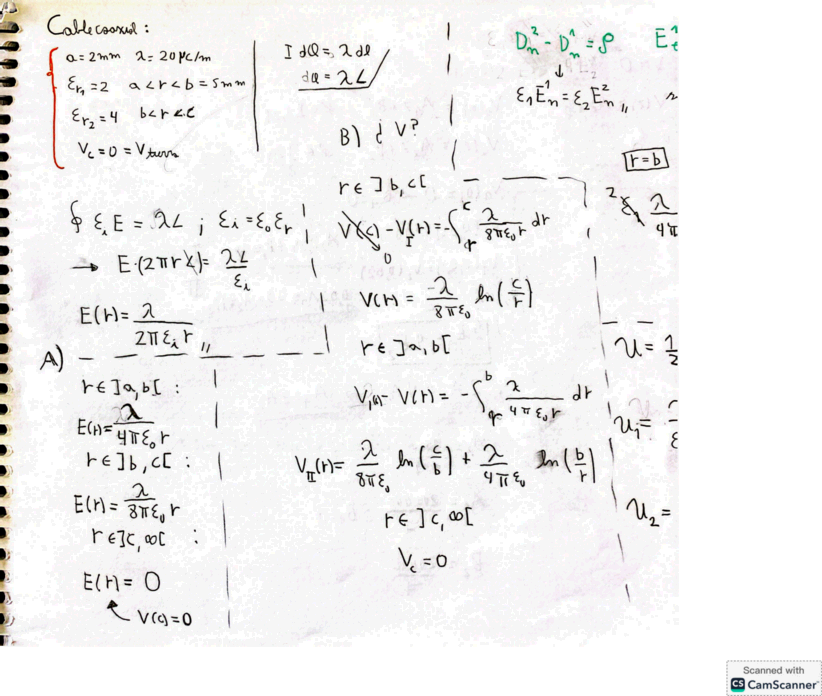 Cable coaxial:
a = 2mm λ = 20 μC/m
εr₁ = 2 a < r < b = 5mm
εr₂ = 4 b < r < c
Vc = 0 = Vtierra
I dQ = λ dl
dQ = λL
∮ εᵢ E = λL ; εᵢ = ε₀ εr
→ E·(2πrL) = λL/εᵢ
E(r) = λ/(2πεᵢ r) ,,
A)
r ∈ ]a,b[ :
E(r) = λ/(4πε₀ r)
r ∈ ]b,c[ :
E(r) = λ/(8πε₀ r)
r ∈ ]c,∞[ :
E(r) = 0
V(c) = 0
B) ¿ V?
r ∈ ]b,c[
V(c) - V_I(r) = -∫_r^c λ/(8πε₀ r) dr
0
V(r) = -λ/(8πε₀) ln(c/r)
r ∈ ]a,b[
- V(r) = -∫_r^b λ/(4πε₀ r) dr
V_II(r) = λ/(8πε₀) ln(c/b) + λ/(4πε₀) ln(b/r)
r ∈ ]c,∞[
Vc = 0
Dn² - Dn¹ = ρ
↓
ε₁En¹ = ε₂En² ,,
r = b
U = 1/2
U₁ =
U₂ =
Scanned with
CS CamScanner